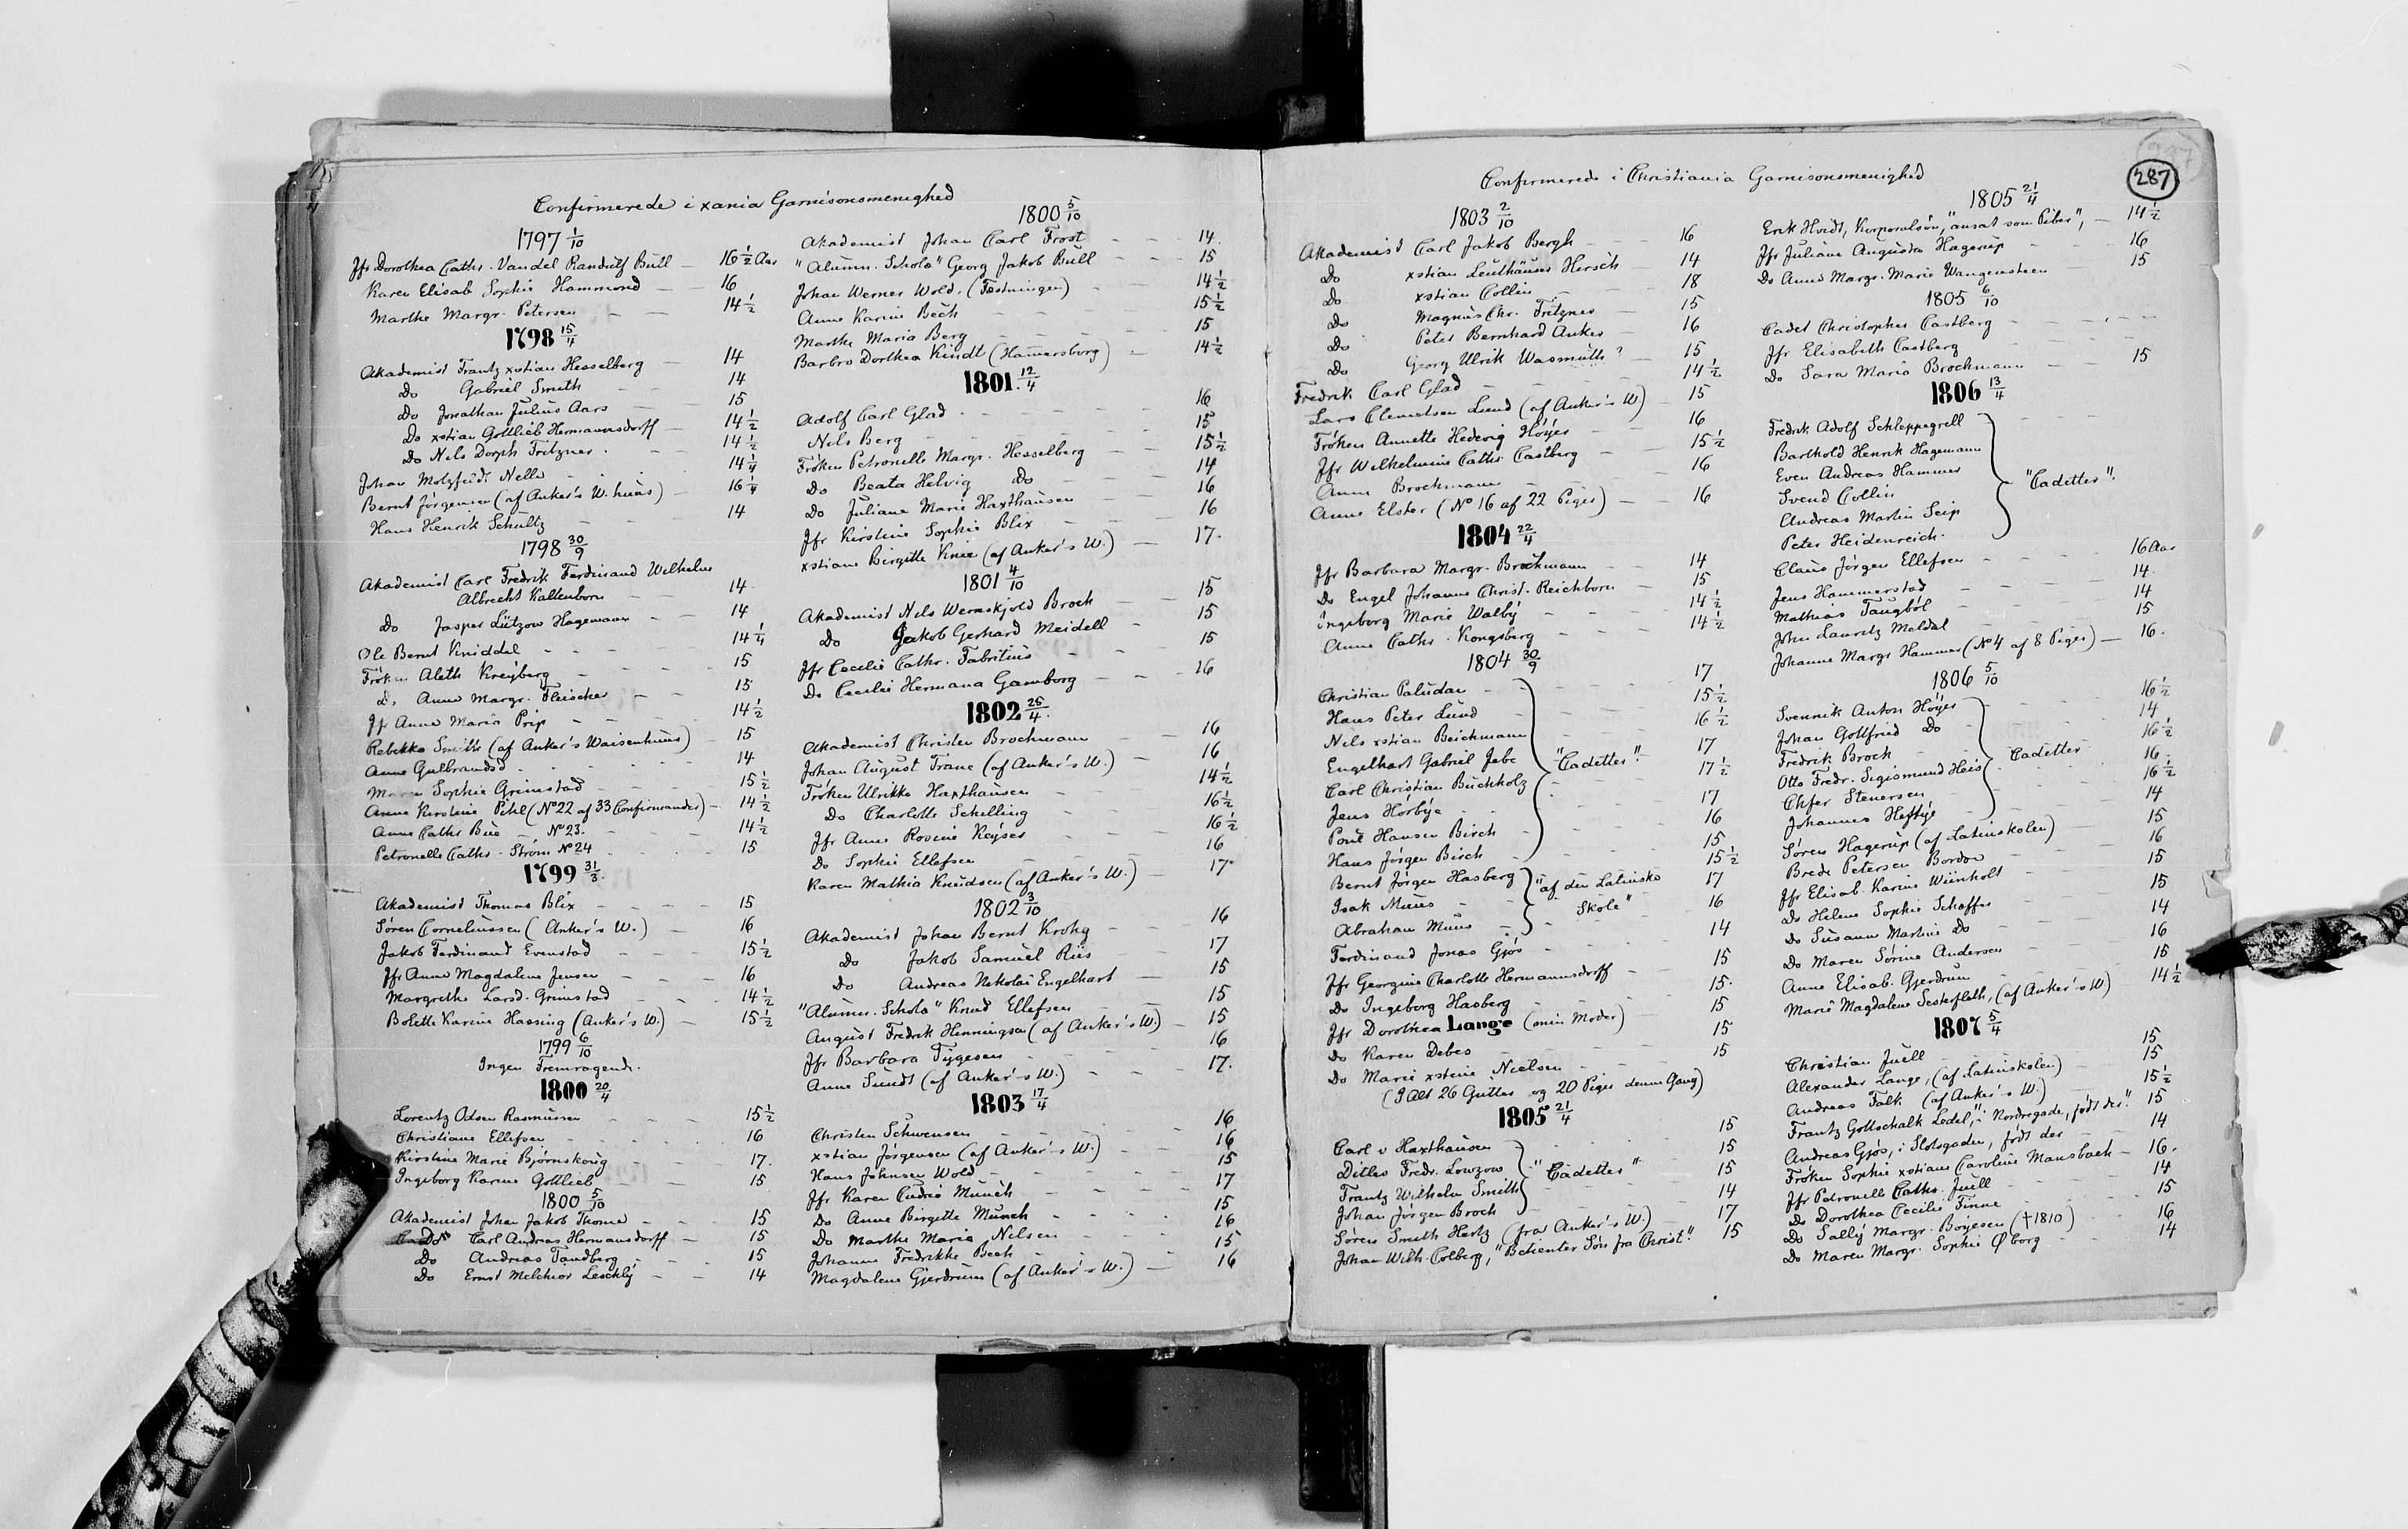 Confirmerede i xania Garnisonsmenighed
1797 1/10
Jfr Dorothea Cathr. Vandel Randulf Bull — 16½ Aar
Karen Elisab Sophie Hammond — 16
Marthe Margr. Petersen — 14½
1798 15/4
Akademist Frantz xstian Hesselberg — 14
Do Gabriel Smith — 14
Do Jonathan Julius Aars — 15
Do xstian Gottlieb Hermannsdorff — 14½
Do Nils Dorph Fritzner — 14½
Johan Molzfeldt Nelle — 14¼
Bernt Jørgensen (af Anker's W. huus) — 16¼
Hans Henrik Schultz — 14
1798 30/9
Akademist Carl Fredrik Ferdinand Wilhelm
Albrecht Kaltenborn — 14
Do Jasper Lützow Hagemann — 14
Ole Bernt Kniddal — 14¼
Frøken Aleth Kreyberg — 15
d. Anne Margr. Fleischer — 15
Jfr Anne Maria Prip — 14½
Rebekka Smith (af Anker's Waisenhuus) — 15
Anne Gulbrandsd — 14
Maren Sophie Grimstad — 15½
Anne Kirstine Pihl (No 22 af 33 Confirmander) — 14½
Anne Cathr Bue — No 23. — 14½
Petronelle Cathr. Strøm No 24 — 15
1799 31/3
Akademist Thomas Blix — 15
Søren Corneliussen (Anker's W.) — 16
Jakob Ferdinand Evenstad — 15½
Jfr Anne Magdalene Jensen — 16
Margrethe Larsd. Grimstad — 14½
Bolette Karine Hassing (Anker's W.) — 15½
1799 6/10
Ingen Fremragende.
1800 20/4
Lorentz Odsen Rasmussen — 15½
Christiane Ellefsen — 16
Kirstine Marie Bjørnskoug — 17.
Ingeborg Karine Gottlieb — 15
1800 5/10
Akademist Johan Jakob Thome — 15
Do Carl Andreas Hermansdorff — 15
Do Andreas Tandberg — 15
Do Ernst Melchior Leschly — 14
1800 5/10
Akademist Johan Carl Frost — 14.
"Alumn. Schola" Georg Jakob Bull — 15
Johan Werner Wold. (Fæstningen) — 14½
Anne Karine Bech — 15½
Marthe Maria Berg — 15
Barbro Dorthea Kindt (Hamersborg) — 14½
1801 12/4
Adolf Carl Glad — 16
Nils Berg — 15
Frøken Petronelle Margr. Hesselberg — 15½
Do Beata Helvig Do — 14
Do Juliane Marie Haxthausen — 16
Jfr Kirstine Sophie Blix — 16
xstiane Birgitte Knie (af Anker's W.) — 17.
1801 4/10
Akademist Nils Wernskjold Broch — 15
Do Jakob Gerhard Meidell — 15
Jfr Cecilie Cathr. Fabritius — 15
Do Cecilie Hermana Gamborg — 16
1802 25/4.
Akademist Christen Brochmann — 16
Johan August Trane (af Anker's W.) — 16
Frøken Ulrikke Haxthausen — 14½
Do Charlotte Schelling — 16½
Jfr Anne Rosine Keyser — 16½
Do Sophie Ellefsen — 16
Karen Mathia Knudsen (af Anker's W.) — 17.
1802 3/10
Akademist Johan Bernt Krohg — 16
Do Jakob Samuel Riis — 17
Do Andreas Nikolai Engelhart — 15
"Alumn. Schola" Knud Ellefsen — 15
August Fredrik Henningsen (af Anker's W.) — 15
Jfr Barbara Tygesen — 16
Anne Sundt (af Anker's W.) — 17.
1803 17/4
Christen Schwensen — 16
xstian Jørgensen (af Anker's W.) — 16
Hans Johnsen Wold — 15
Jfr Karen Cudrio Munch — 17
Do Anne Birgitte Munch — 15
Do Marthe Maria Nilsen — 16
Johanne Fredrikke Bech — 15
Magdalene Gjerdrum (af Anker's W.) — 16
Confirmerede i Christiania Garnisonsmenighed
287
1803 2/10
Akademist Carl Jakob Bergh — 16
Do xstian Leuthäuser Hersch — 14
Do xstian Collin — 18
Do Magnus Chr. Fritzner — 15
Do Peter Bernhard Anker — 16
Do Georg Ulrik Wasmuth? — 15
Fredrik Carl Glad — 14½
Lars Clemetsen Lund (af Anker's W.) — 15
Frøken Annette Hedevig Høyer — 16
Jfr Wilhelmine Cathr Castberg — 15½
Anne Brochmann — 16
Anne Elster (No 16 af 22 Piger) — 16
1804 22/4
Jfr Barbara Margr. Brochmann — 14
Do Engel Johanne Christ. Reichborn — 15
Ingeborg Marie Walby — 14½
Anne Cathr. Kongsberg — 14½
1804 30/9
Christian Paludan — 17
Hans Peter Lund — 15½
Nils xstian Beichmann — 16½
Engelhart Gabriel Jebe "Cadetter". — 17
Carl Christian Buchholz — 17½
Jens Hørbye — 17
Poul Hansen Birch — 16
Hans Jørgen Birch — 15
Bernt Jørgen Hasberg — 15½
Isak Muus "af den Latinske — 17
Abraham Muus Skole" — 16
Ferdinand Jonas Gjøs — 14
Jfr Georgine Charlotte Hermannsdorff — 15
Do Ingeborg Hasberg — 15.
Jfr Dorothea Lange (min Moder) — 15
Do Karen Debes — 15
Do Marie xstine Nielsen — 15
(I Alt 26 Gutter og 20 Piger denne Gang)
1805 21/4
Carl v Haxthausen — 15
Ditlev Fredr. Lowzow "Cadetter" — 15
Frantz Wilhelm Smith — 15
Johan Jørgen Broch — 14
Søren Smith Hertz (fra Anker's W.) — 17
Johan Wilh. Colberg, "Betienter Søn fra Christ." — 15
1805 21/4
Erik Hvidt, Korporalsøn, "ansat som Piber", — 14½
Jfr Juliane Augusta Hagerup — 16
Do Anne Margr. Marie Wangensteen — 15
1805 6/10
Cadet Christopher Castberg
Jfr Elisabeth Castberg
Do Sara Maria Brochmann — 15
1806 13/4
Fredrik Adolf Schleppegrell
Barthold Henrik Hagemann
Even Andreas Hammer
Svend Collin "Cadetter".
Andreas Martin Seip
Peter Heidenreich.
Claus Jørgen Ellefsen — 16 Aar
Jens Hammerstad — 14.
Mathias Taugbøl — 14
John Lauritz Meldal — 15
Johanne Margr Hammer (No 4 af 8 Piger) — 16.
1806 5/10
Svennik Anton Høyer — 16½
Johan Gottfried Do — 14
Fredrik Broch Cadetter — 16½
Otto Fredr. Sigismund Heis — 16.
Chfer Stenersen — 16½
Johannes Heftye — 14
Søren Hagerup (af Latinskolen) — 15
Brede Petersen Bordoe — 16
Jfr Elisab. Karine Wiinholt — 15
Do Helene Sophie Schaffer — 15
Do Susanne Martine Do — 14
Do Maren Sørine Andersen — 16
Anne Elisab. Gjerdrum — 15
Marie Magdalene Sesterfleth, (af Anker's W) — 14½
1807 5/4
Christian Juell — 15
Alexander Lange, (af Latinskolen) — 15
Andreas Falk (af Anker's W.) — 15½
Frantz Gottschalk Ledel, "i Nordregade, født der". — 15
Andreas Gjøs, i Slotsgaden, født der — 14
Frøken Sophie xstiane Caroline Mansbach — 16.
Jfr Petronelle Cathr. Juell — 14
Do Dorothea Cecilie Finne — 15
Do Sally Margr. Boyesen (†1810) — 16
Do Maren Margr. Sophie Øborg — 14